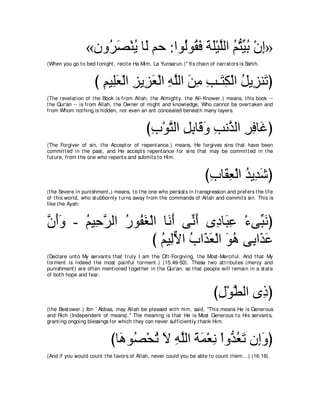 «إِنْ بُيِّتُّمُ اللَّيْلَةَ فَقُولُوا: حم لَا يُنْصَرُونَ»
(When you go to bed tonight, recite Ha Mim, La Yunsarun.)'' Its chain of narrators is Sahih.
(تَنزِيلُ الْكِتَـبِ مِنَ اللَّهِ الْعَزِيزِ الْعَلِيمِ )
(The revelation of the Book is from Allah, the Almighty, the All-Knower.) means, this book -- the Qur'an -- is from Allah, the Owner of might and knowledge, Who cannot be overtaken and from Whom nothing is hidden, not even an ant concealed beneath many layers.
(غَافِرِ الذَّنبِ وَقَابِلِ التَّوْبِ)
(The Forgiver of sin, the Acceptor of repentance,) means, He forgives sins that have been committed in the past, and He accepts repentance for sins that may be committed in the future, from the one who repents and submits to Him.
(شَدِيدُ الْعِقَابِ)
(the Severe in punishment,) means, to the one who persists in transgression and prefers the life of this world, who stubbornly turns away from the commands of Allah and commits sin. This is like the Ayah:
(نَبِّىءْ عِبَادِى أَنِّى أَنَا الْغَفُورُ الرَّحِيمُ - وَأَنَّ
عَذَابِى هُوَ الْعَذَابُ الأَلِيمُ )
(Declare unto My servants that truly I am the Oft-Forgiving, the Most-Merciful. And that My torment is indeed the most painful torment.) (15:49-50). These two attributes (mercy and punishment) are often mentioned together in the Qur'an, so that people will remain in a state of both hope and fear.
(ذِي الطَّوْلِ)
(the Bestower.) Ibn `Abbas, may Allah be pleased with him, said, "This means He is Generous and Rich (Independent of means)." The meaning is that He is Most Generous to His servants, granting ongoing blessings for which they can never sufficiently thank Him.
(وَإِن تَعُدُّواْ نِعْمَةَ اللَّهِ لاَ تُحْصُوهَآ)
(And if you would count the favors of Allah, never could you be able to count them...) (16:18).